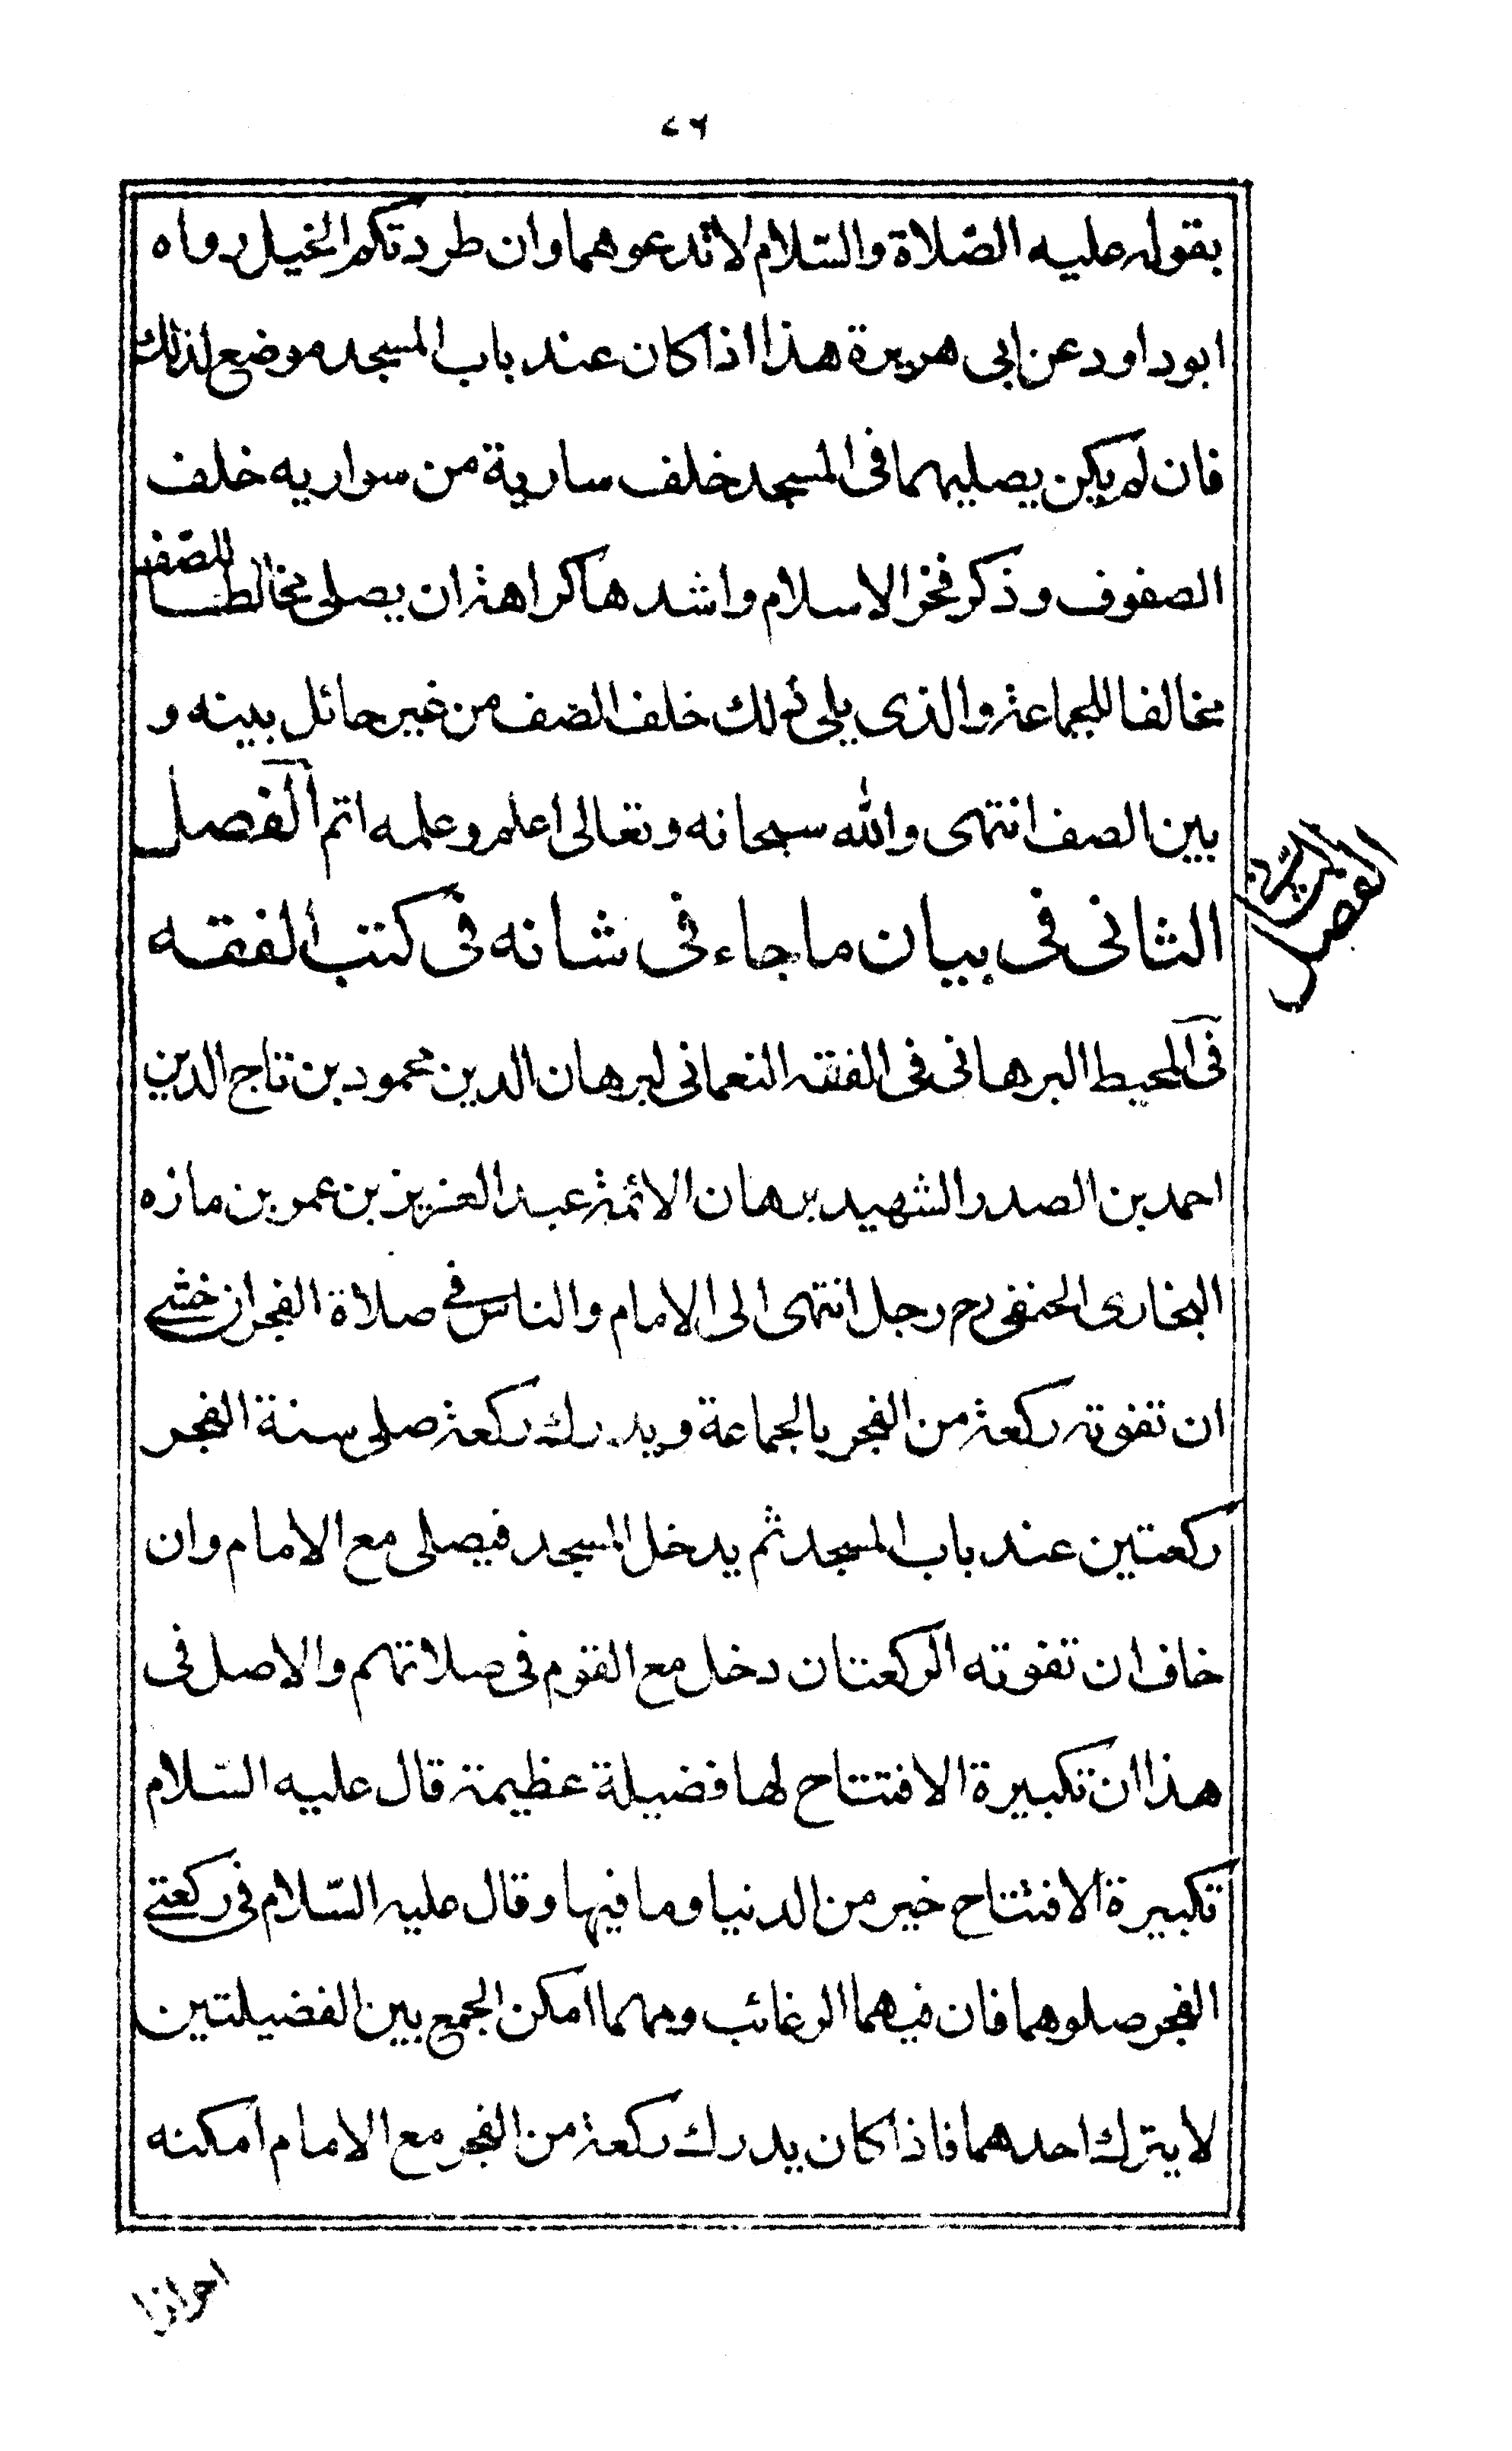 ٢٦
بقوله عليه الصّلاة والسّلام لا تدعوهما وان طردتكم الخيل رواه
ابوداود عن ابى هريرة هذا اذا كان عند باب المسجد موضع لذلك
فان لم يكن يصليهما فى المسجد خلف سارية من سواريه خلف
الصفوف وذكر فخر الاسلام واشدها كراهة ان يصلى مخالطا للصّف
مخالفا للجماعة والذى يلى ذلك خلف الصف من غير حائل بينه و
بين الصف انتهى والله سبحانه وتعالى اعلم وعلمه اتم الفصل
الثانى فى بيان ما جاء فى شانه فى كتب الفقه
فى المحيط البرهانى فى الفقه النعمانى لبرهان الدين محمود بن تاج الدين
احمد بن الصدر الشهيد برهان الائمة عبد العزيز بن عمر بن مازه
البخارى الحنفى رح رجل انتهى الى الامام والناس فى صلاة الفجر ان خشى
ان تفوته ركعة من الفجر بالجماعة ويدرك ركعة صلى سنة الفجر
ركعتين عند باب المسجد ثم يدخل المسجد فيصلى مع الامام وان
خاف ان تفوته الركعتان دخل مع القوم فى صلاتهم والاصل فى
هذا ان تكبيرة الافتتاح لها فضيلة عظيمة قال عليه السّلام
تكبيرة الافتتاح خير من الدنيا وما فيها وقال عليه السّلام فى ركعتى
الفجر صلوهما فان فيهما الرغائب ومهما امكن الجمع بين الفضيلتين
لا يترك احدهما فاذا كان يدرك ركعة من الفجر مع الامام امكنه
الفصل
احراز